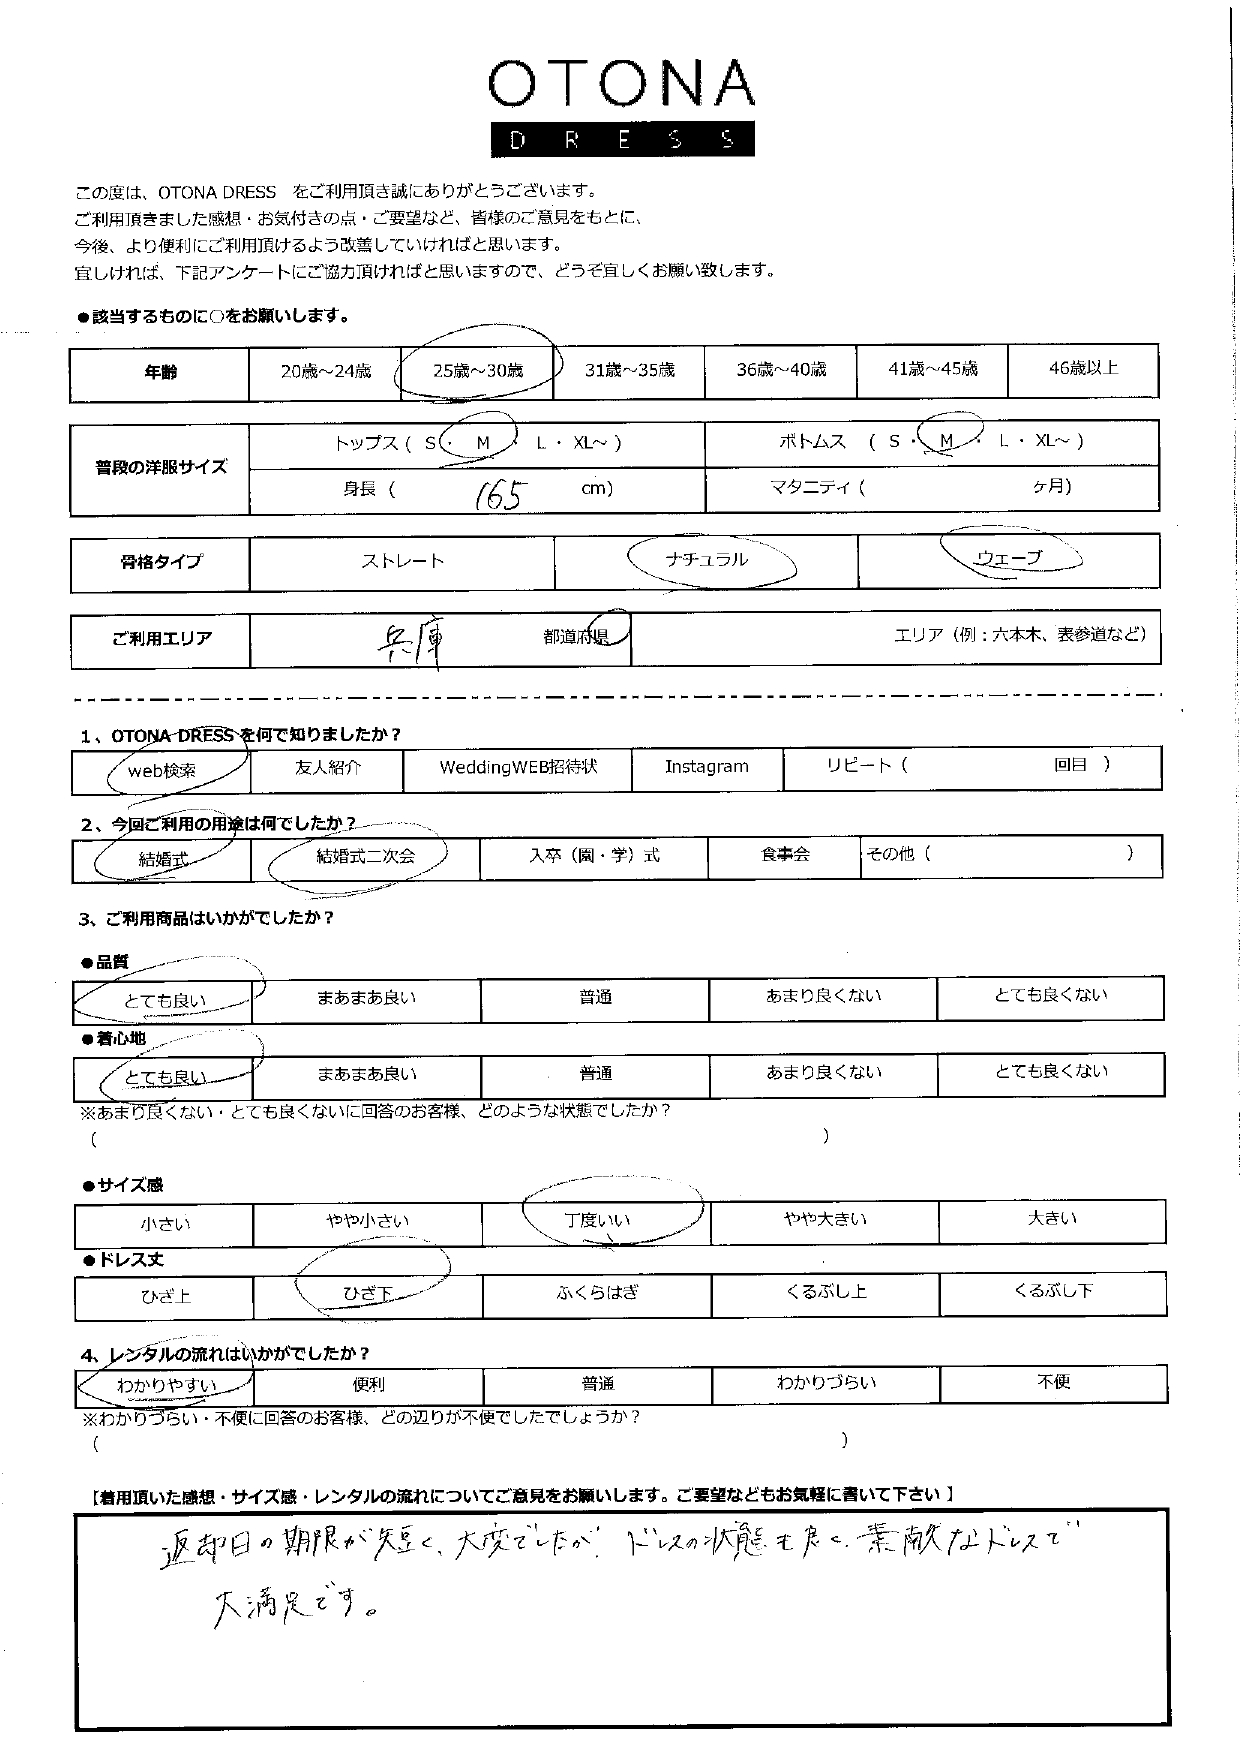 OTONA
DRESS
この度は、OTONA DRESS をご利用頂き誠にありがとうございます。
ご利用頂きました感想・お気付きの点・ご要望など、皆様のご意見をもとに、
今後、より便利にご利用頂けるよう改善していければと思います。
宜しければ、下記アンケートにご協力頂ければと思いますので、どうぞ宜しくお願い致します。
●該当するものに○をお願いします。
年齢 20歳～24歳 25歳～30歳 31歳～35歳 36歳～40歳 41歳～45歳 46歳以上
普段の洋服サイズ トップス ( S ・ M ・ L ・ XL～ ) ボトムス ( S ・ M ・ L ・ XL～ )
身長 ( 165 cm) マタニティ ( ヶ月)
骨格タイプ ストレート ナチュラル ウェーブ
ご利用エリア 兵庫 都道府県 エリア（例：六本木、表参道など）
1、OTONA DRESS を何で知りましたか？
web検索 友人紹介 WeddingWEB招待状 Instagram リピート ( 回目 )
2、今回ご利用の用途は何でしたか？
結婚式 結婚式二次会 入卒（園・学）式 食事会 その他 ( )
3、ご利用商品はいかがでしたか？
●品質
とても良い まあまあ良い 普通 あまり良くない とても良くない
●着心地
とても良い まあまあ良い 普通 あまり良くない とても良くない
※あまり良くない・とても良くないに回答のお客様、どのような状態でしたか？
( )
●サイズ感
小さい やや小さい 丁度いい やや大きい 大きい
●ドレス丈
ひざ上 ひざ下 ふくらはぎ くるぶし上 くるぶし下
4、レンタルの流れはいかがでしたか？
わかりやすい 便利 普通 わかりづらい 不便
※わかりづらい・不便に回答のお客様、どの辺りが不便でしたでしょうか？
( )
【着用頂いた感想・サイズ感・レンタルの流れについてご意見をお願いします。ご要望などもお気軽に書いて下さい】
返却日の期限が短く、大変でしたが、ドレスの状態も良く、素敵なドレスで
大満足です。